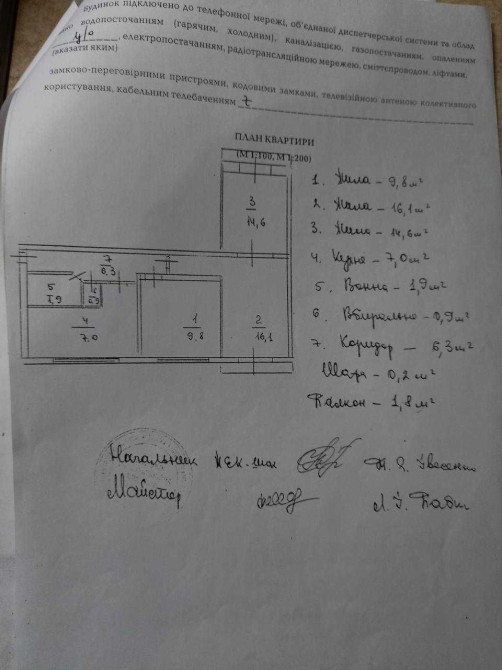 Будинок підключено до телефонної мережі, об'єднаної диспетчерської системи та облад
водопостачанням (гарячим, холодним), каналізацією, газопостачанням, опаленням
ц/о, електропостачанням, радіотрансляційною мережею, сміттєпроводом, ліфтами,
(вказати яким)
замково-переговірними пристроями, кодовими замками, телевізійною антеною колективного
користування, кабельним телебаченням
ПЛАН КВАРТИРИ
(М 1:100, М 1:200)
3
14,6
7
6,3
5
1,9
6
0,9
4
7,0
1
9,8
2
16,1
1. Жила - 9,8 м²
2. Жила - 16,1 м²
3. Жила - 14,6 м²
4. Кухня - 7,0 м²
5. Ванна - 1,9 м²
6. Вбиральня - 0,9 м²
7. Коридор - 6,3 м²
Шафа - 0,2 м²
Балкон - 1,8 м²
Начальник
Майстер